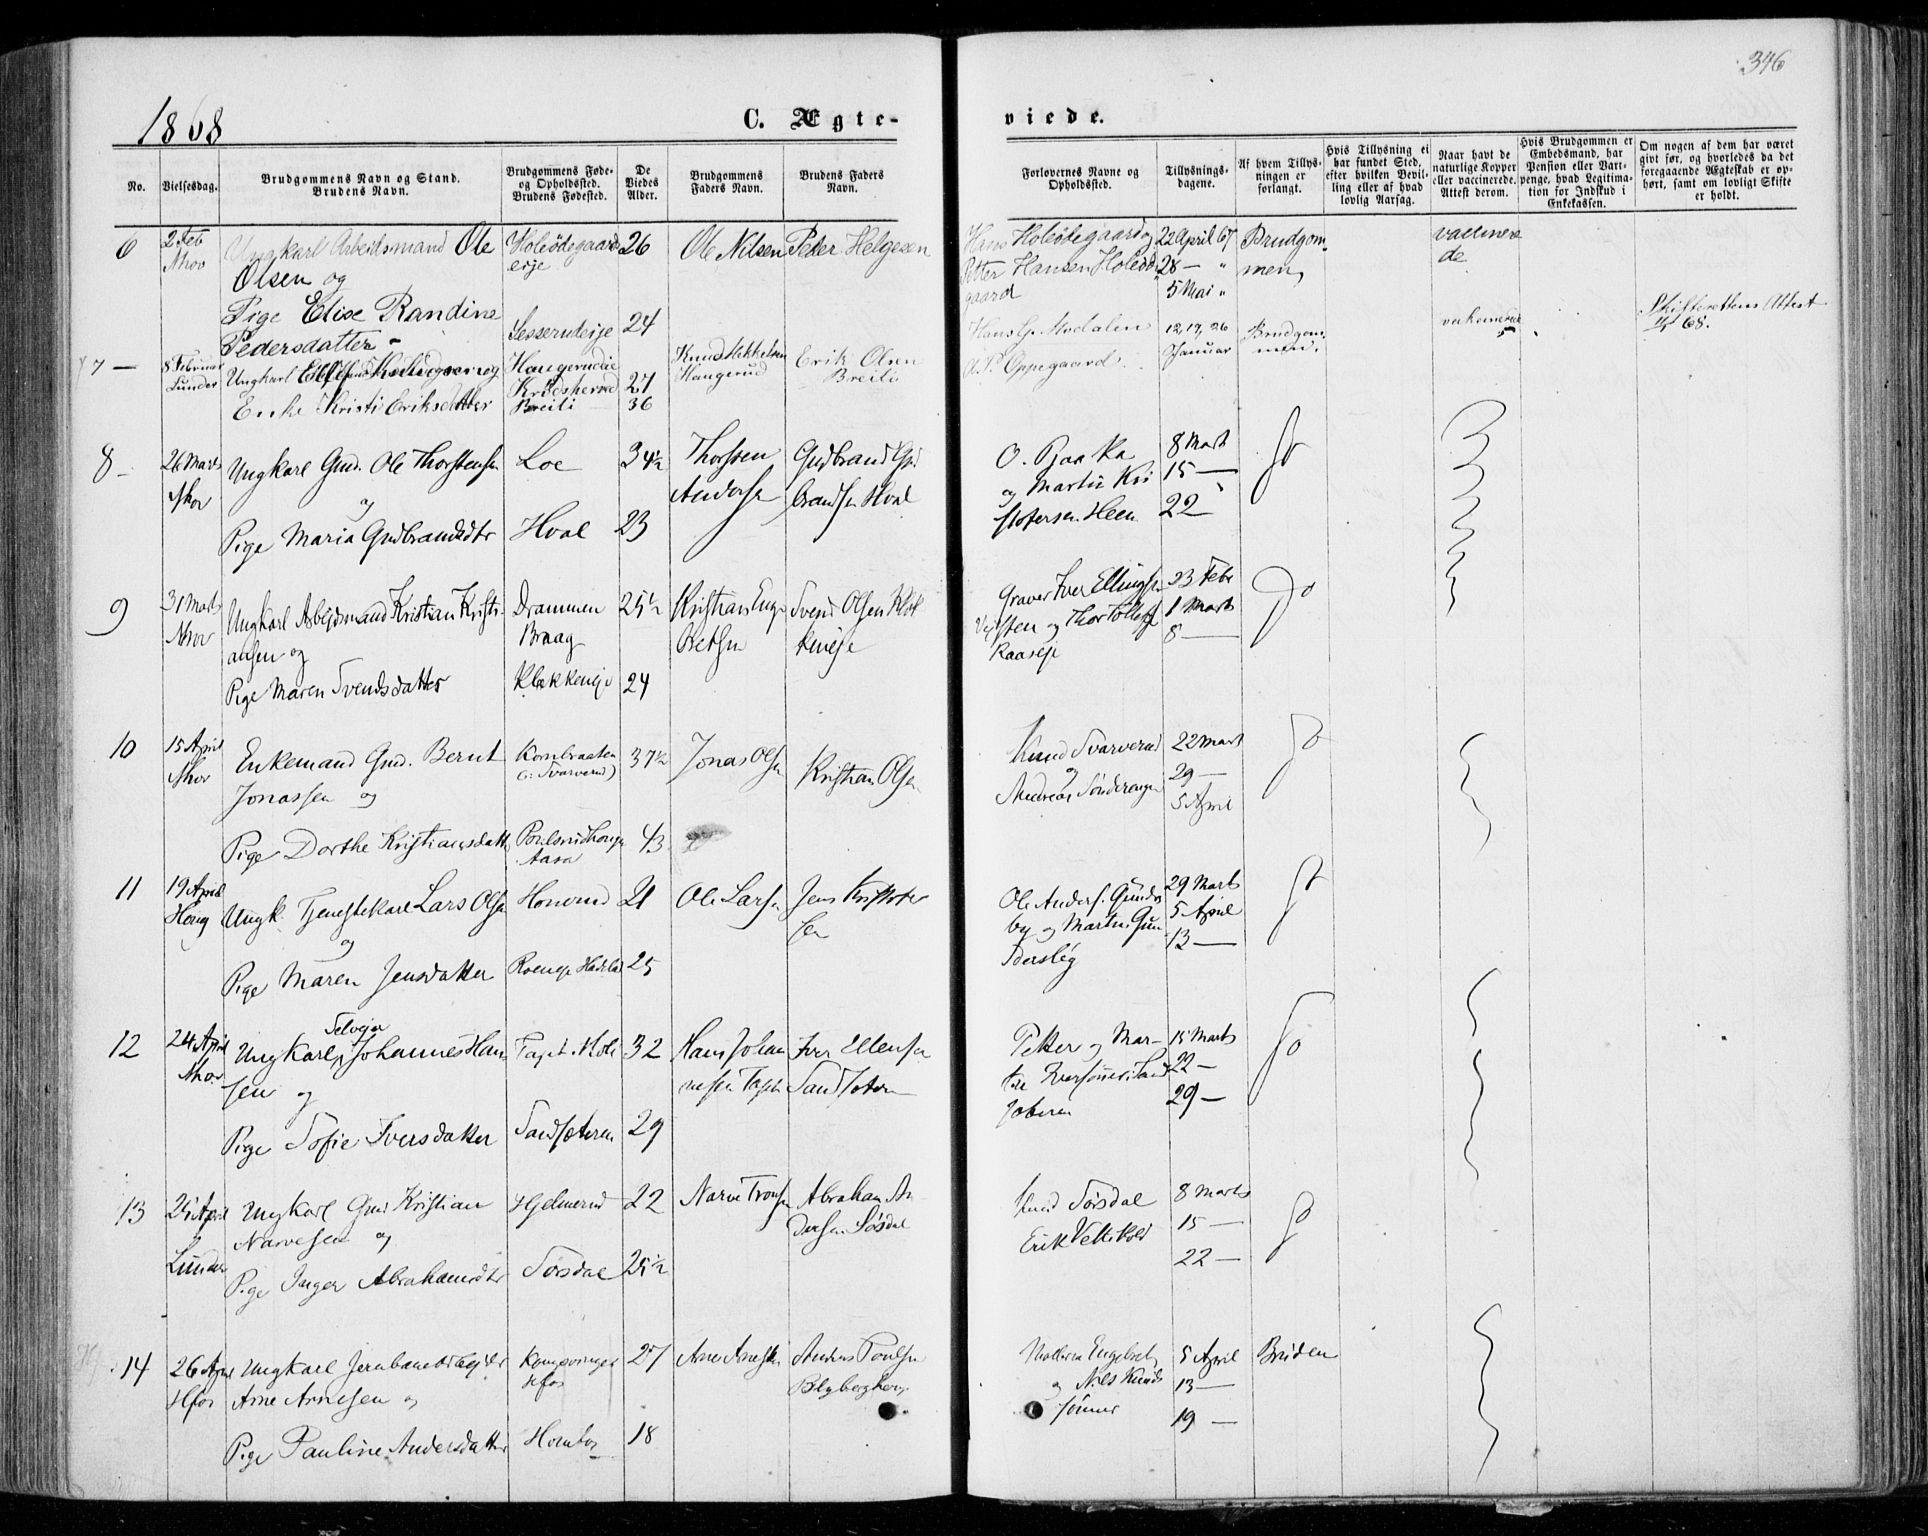 346
1868
C. Ægte-
viede.
No.
Vielsesdag.
Brudgommens Navn og Stand.
Brudens Navn.
Brudgommens Føde-
og Opholdssted.
Brudens Fødested.
De
Viedes
Alder.
Brudgommens
Faders Navn.
Brudens Faders
Navn.
Forlovernes Navne og
Opholdssted.
Tillysnings-
dagene.
Af hvem Tillys-
ningen er
forlangt.
Hvis Tillysning ei
har fundet Sted,
efter hvilken Bevil-
ling eller af hvad
lovlig Aarsag.
Naar havt de
naturlige Kopper
eller vaccinerede.
Attest derom.
Hvis Brudgommen er
Embedsmand, har
Pension eller Vart-
penge, hvad Legitima-
tion for Indskud i
Enkekassen.
Om nogen af dem har været
givt før, og hvorledes da det
foregaaende Ægteskab er op-
hørt, samt om lovligt Skifte
er holdt.
6
2 Feb
Nhov
Ungkarl Arbeidsmand Ole
Olsen og
Pige Elise Randine
Pedersdatter
Holeødegaards
eije
Sesserudeije
26
24
Ole Nilsen
Peder Helgesen
Hans Holeødegaard og
Petter Hansen Holeød
gaard
22 April 67
28 — "
5 Mai "
Brudgom
men
vaccinere
de
7 —
8 Februar
Lunder
Ungkarl Knudsen og
Enke Kristi Eriksdatter
Haugerudeie
Krødsherred
Breili
27
36
Knud Mikkelsen
Haugerud
Erik Olsen
Breili
Hans G. Modalen
Oppegaard
12, 19, 26
Januar
Brudgom
men.
Skifterettens Attest
68.
8
26 Marts
Nhov
Ungkarl Gmd. Ole Thorstensen
og
Pige Maria Gudbrandsdtr
Loe
Hval
34½
23
Thorsten
Andersen
Gudbrand Gud
brandsen Hval
O. Bjaaka
og Martin Kri
stofersen Heen
8 Mart
15 —
22
do
9
31 Marts
Nhov
Ungkarl Arbejdsmand Kristian Kristi
ansen og
Pige Maren Svendsdatter
Drammen
Braag
Klækkeneje
25½
24
Kristian Enge
bretsen
Svend Olsen Klæk
keneje
Graver Iver Ellingsen
Vejsten og Thor Tollefs
Raaseje
23 Febr
1 Marts
8 —
do
10
15 April
Nhov
Enkemand Gmd. Bernt
Jonassen og
Pige Dorthe Kristiansdatt
Kornbraaten
(: Svarverud)
Aasa
37½
43
Jonas Olsen
Kristian Olsen
Knud Svarverud
og
Andreas Sønderengen
22 Mart
29 —
5 April
do
11
19 April
Haug
Ungk. Tjenestekarl Lars Olsen
og
Pige Maren Jensdatter
Honerud
21
25
Ole Larsen
Jens Kristofer
sen
Ole Anders. Gunders
by og Martin Gun
dersby
29 Marts
5 April
13 —
do
12
24 April
Nhov
Selvejer
Ungkarl Johannes Han
sen og
Pige Sofie Iversdatter
Tajet Hole
Sandsæteren
32
29
Hans Johan
nesen Tajet
Iver Ellensen
Sandsæteren
Petter og Mar-
tin Iversønner Sand
sæteren
15 Marts
22 —
29 —
do
13
25 April
Lunder
Ungkarl Gmd Kristian
Narvesen og
Pige Inger Abrahamsdtr
Hjelmerud
Sørsdal
22
25½
Narve Tronsen
Abraham An
dersen Sørsdal
Knud Sørsdal
Erik Vekikold
8 Marts
15 —
22 —
do
14
26 April
Hfos
Ungkarl Jernbanearbejder
Arne Arnesen og
Pige Pauline Andersdatter
Kongsvinger
Hfos
27
18
Arne Arnesen
Anders Poulsen
Blybergkong
Engebret
og Nils Knuds
sønner
5 April
13 —
19 —
Bruden